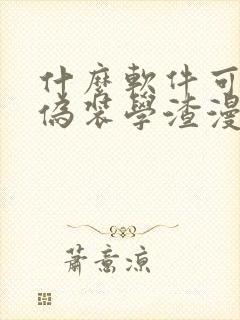 什麼軟件可
偽裝學渣漫
蕭意涼